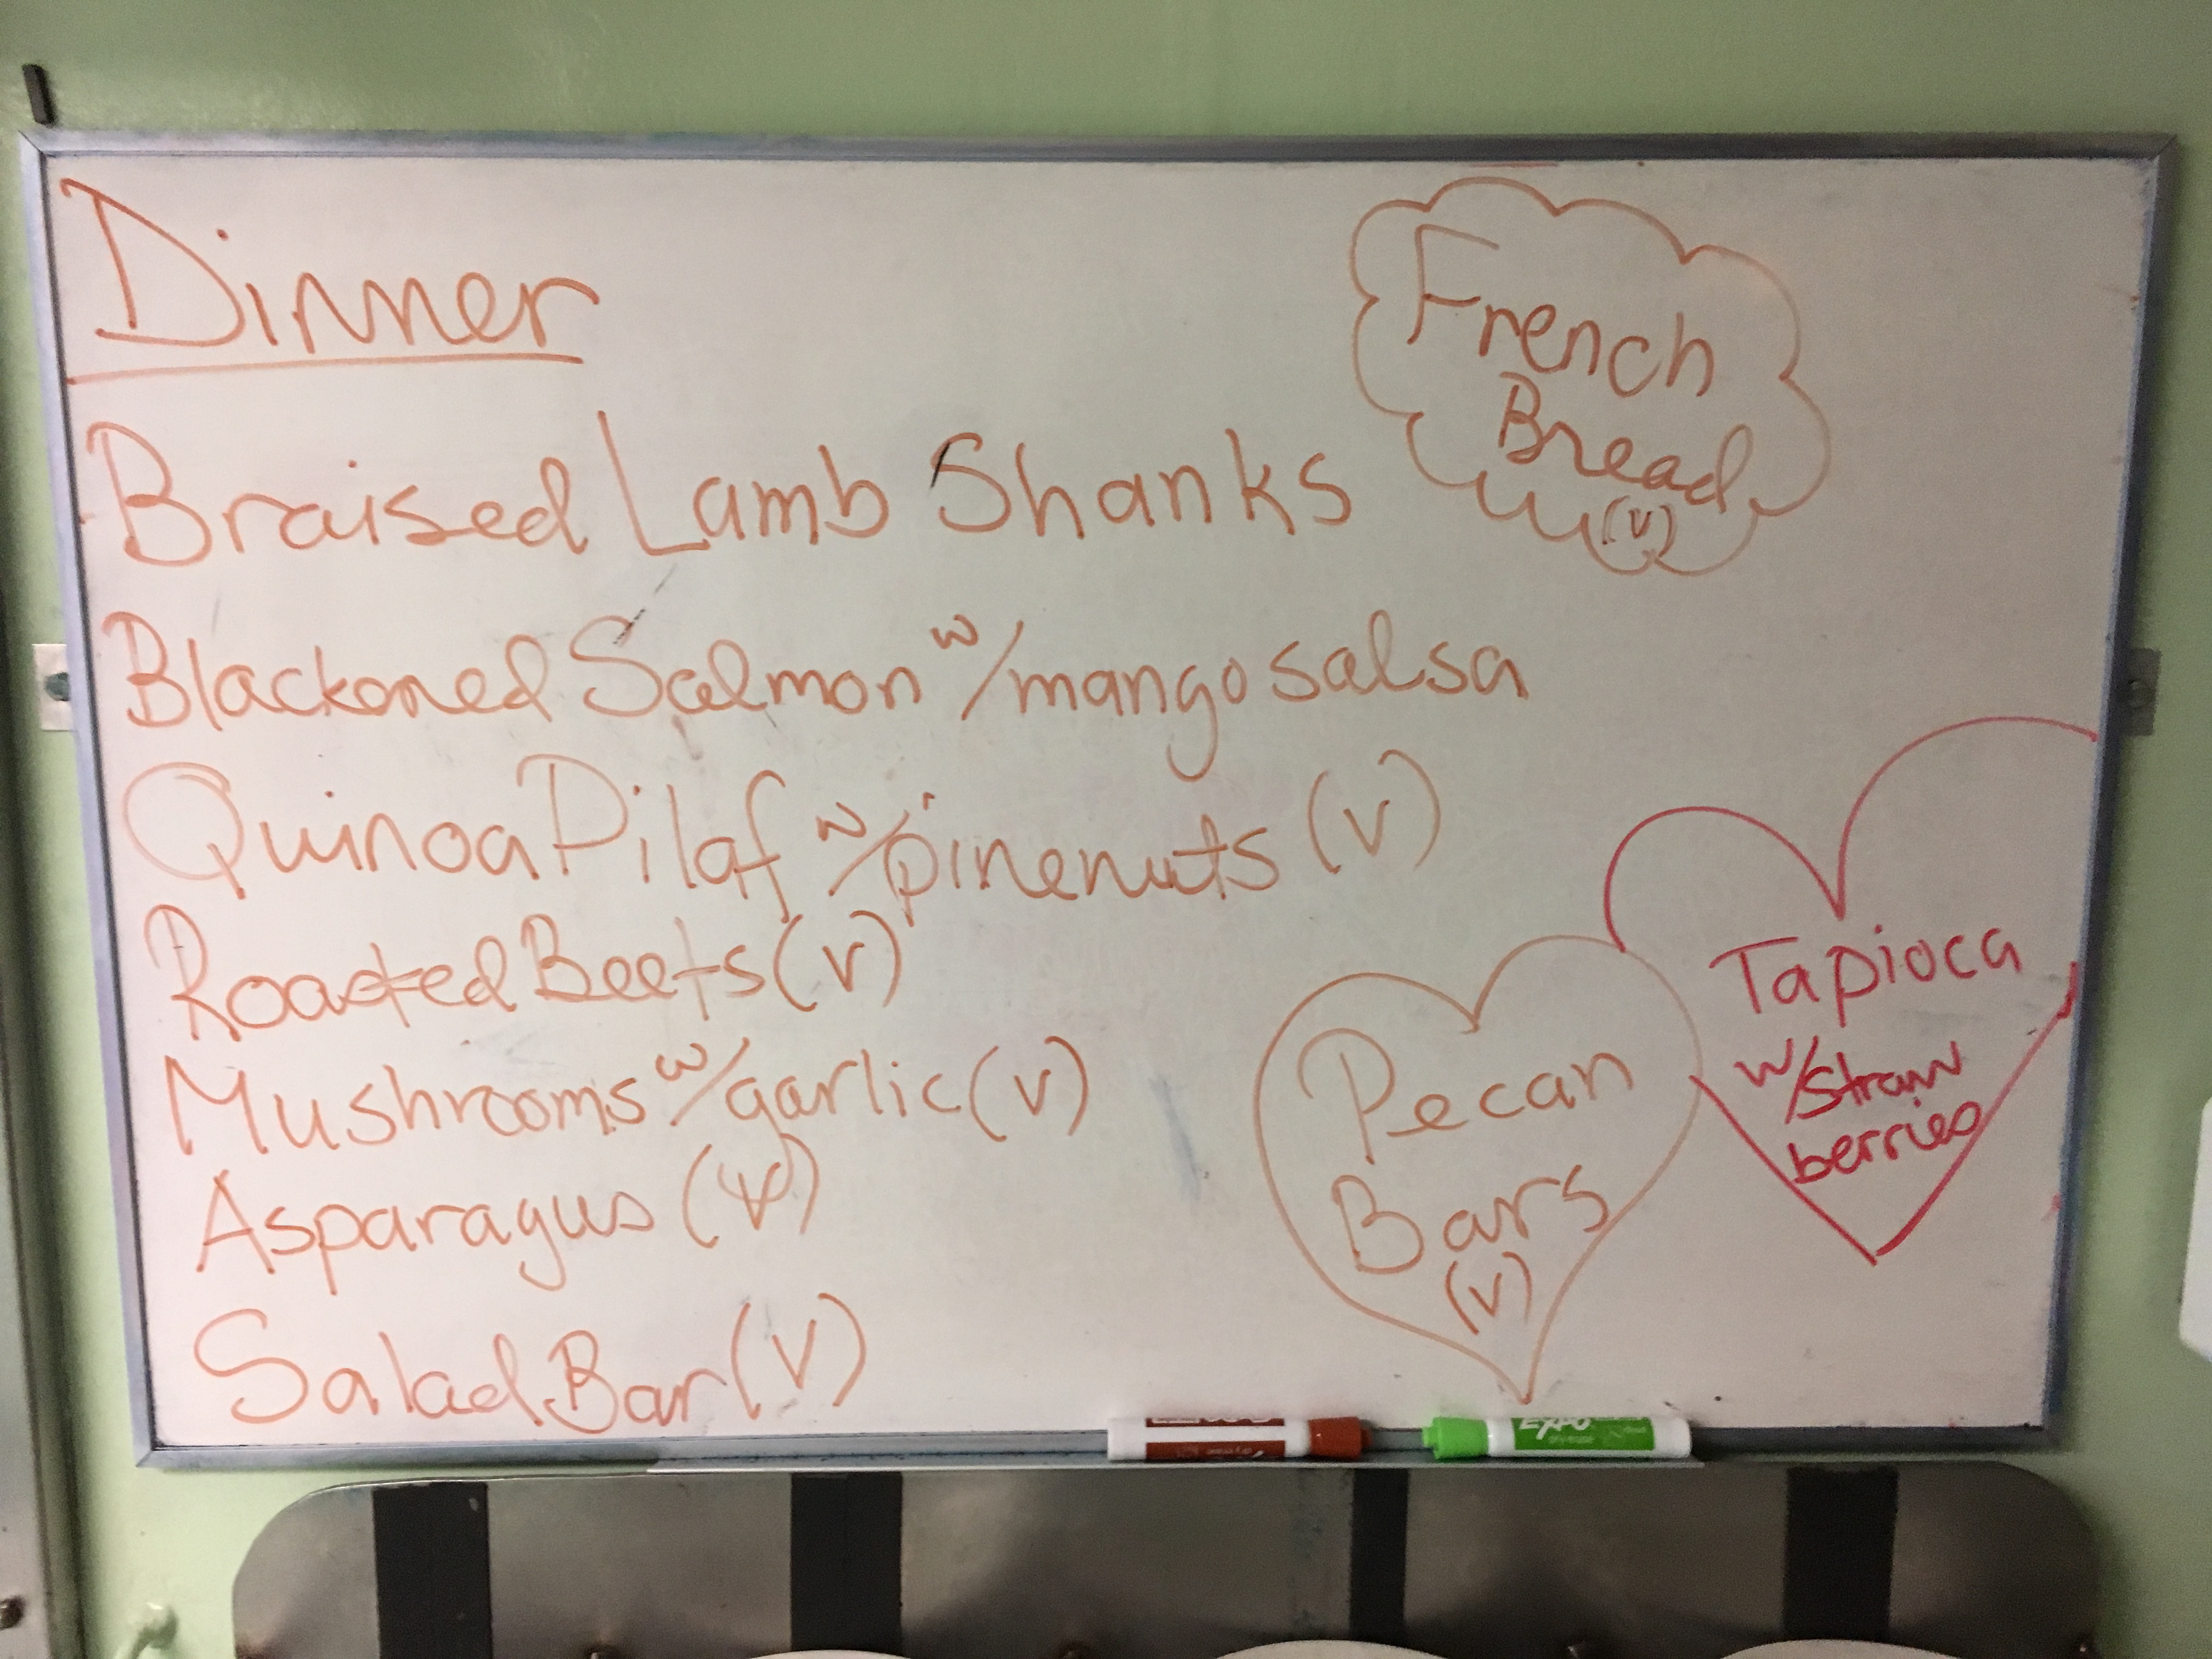 Dinner
French
Bread
(V)
Braised Lamb Shanks
Blackened Salmon w/mango salsa
Quinoa Pilaf w/pinenuts (V)
Roasted Beets (V)
Mushrooms w/garlic (V)
Asparagus (V)
Salad Bar (V)
Pecan
Bars
(V)
Tapioca
w/straw
berries
EXPO